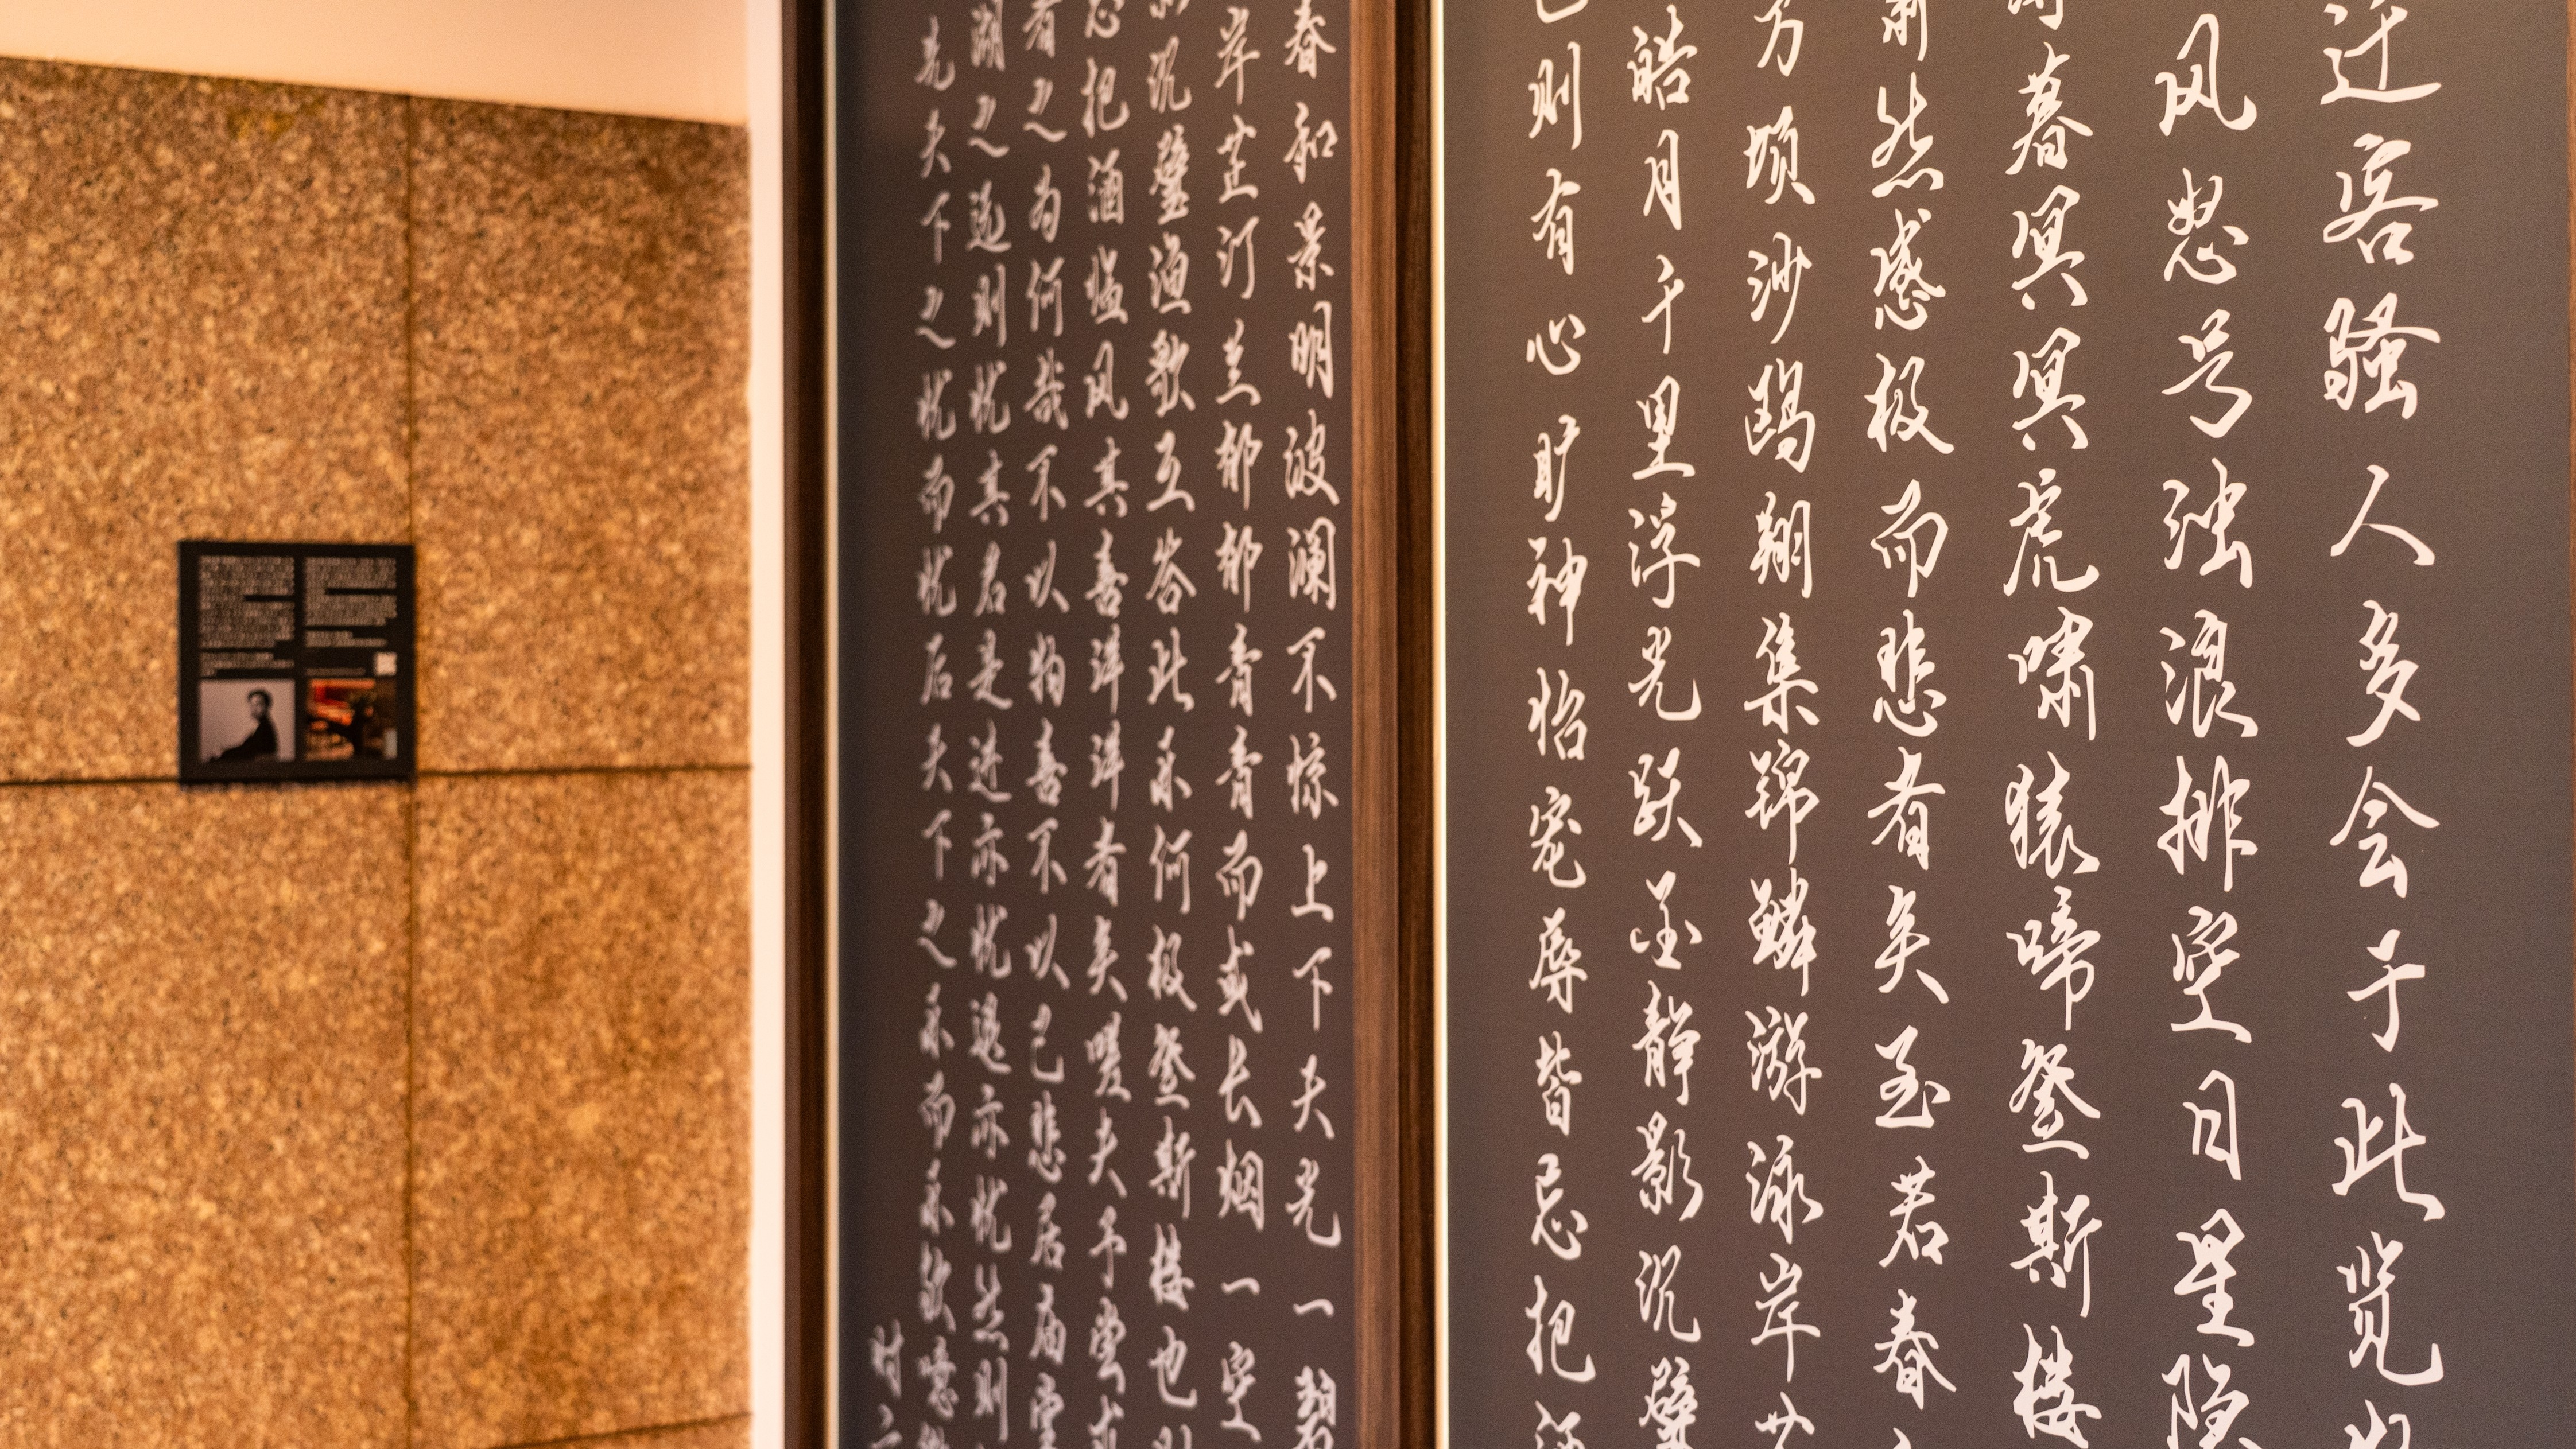 迁客骚人多会于此览
风怒号浊浪排空日星隐
暮冥冥虎啸猿啼登斯楼
然感极而悲者矣至若春
万顷沙鸥翔集锦鳞游泳岸
皓月千里浮光跃金静影沉璧
则有心旷神怡宠辱皆忘把
春和景明波澜不惊上下天光一碧
岸芷汀兰郁郁青青而或长烟一空
沉璧渔歌互答此乐何极登斯楼也则
忘把酒临风其喜洋洋者矣嗟夫予尝求
者之为何哉不以物喜不以己悲居庙堂
湖之远则忧其君是进亦忧退亦忧然则
先天下之忧而忧后天下之乐而乐欤噫
时六